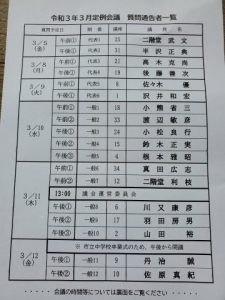 令和３年３月定例会議 質問通告者一覧
質問予定日 順番 議席 議員名
３／５（金） 午前① 代表1 23 二階堂 武文
午後① 代表2 31 半沢 正典
３／８（月） 午前① 代表3 21 高木 克尚
午後① 代表4 19 後藤 善次
３／９（火） 午前① 代表5 8 佐々木 優
午後① 代表6 1 沢井 和宏
３／10（水） 午前① 一般1 18 小熊 省三
午前② 一般2 33 渡辺 敏彦
午後① 一般3 24 小松 良行
午後② 一般4 15 鈴木 正実
午後③ 一般5 5 根本 雅昭
３／11（木） 午前① 一般6 14 真田 広志
午前② 一般7 12 二階堂 利枝
13:00 議会運営委員会
午後① 一般8 6 川又 康彦
午後② 一般9 17 羽田 房男
午後③ 一般10 2 山田 裕
３／12（金） ※ 市立中学校卒業式のため、午後から開議
午後① 一般11 9 丹治 誠
午後② 一般12 10 佐原 真紀
会議の時間等については裏面をご覧ください